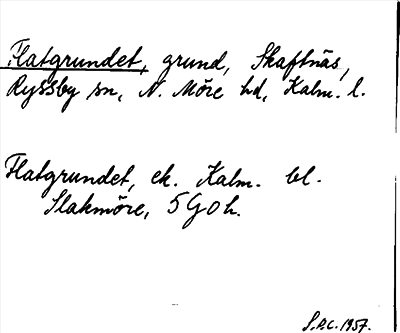 Flatgrundet, grund, Skaftnäs,
Ryssby sn, N. Möre hd, Kalm. l.
Flatgrundet, ek. Kalm. bl.
Slakmöre, 5 G o h.
S.R.C. 1957.